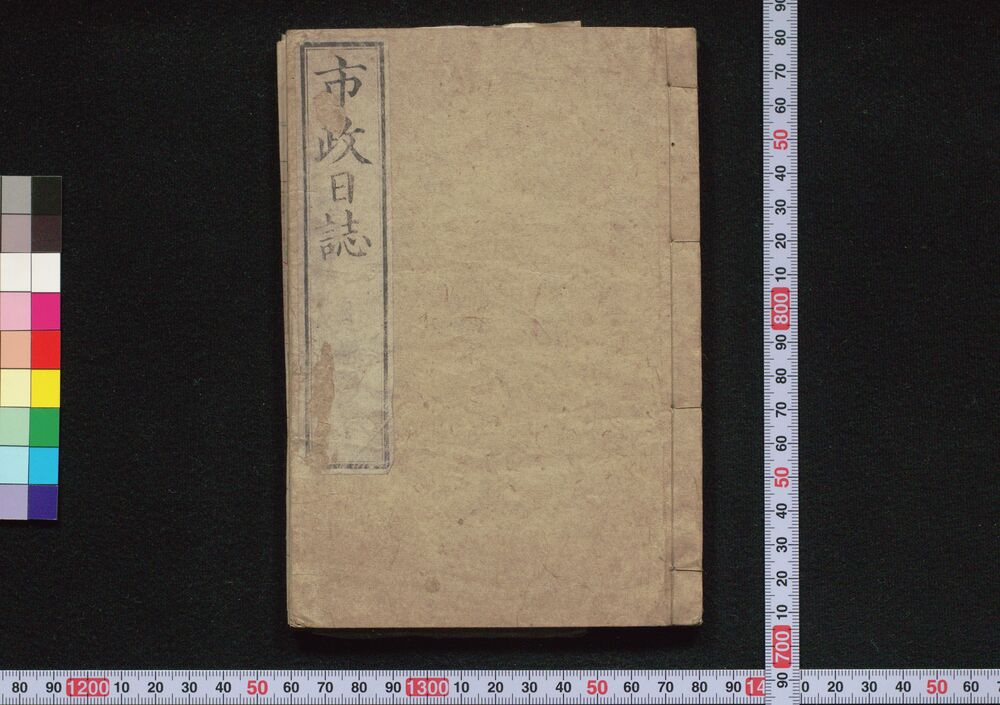 市政日誌
90
80
70
60
50
40
30
20
10
800
90
80
70
60
50
40
30
20
10
700
90
80 90 1200 10 20 30 40 50 60 70 80 90 1300 10 20 30 40 50 60 70 80 90 14 0 20 30 40 50 60